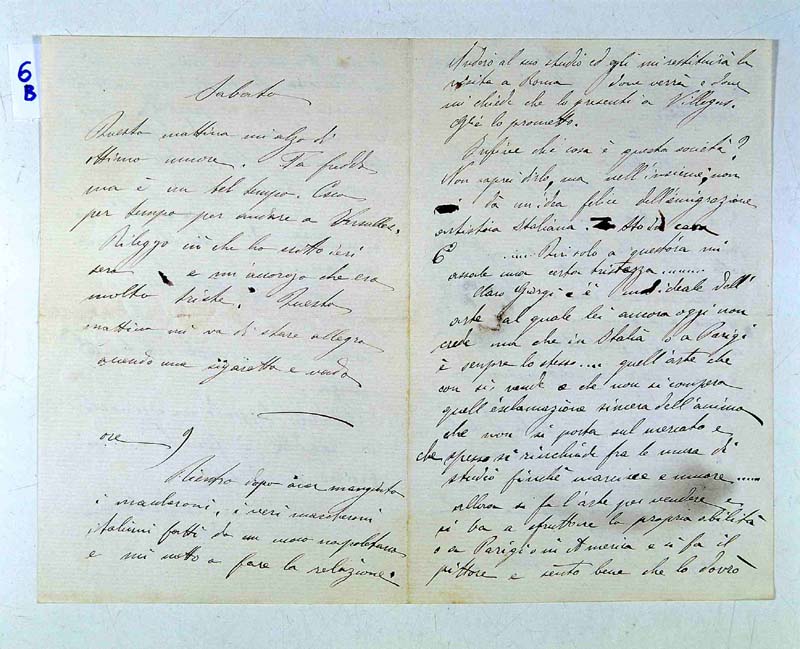 6
B
Sabato
Questa mattina mi alzo di
ottimo umore. Fa freddo
ma è un bel tempo. Esco
per tempo per andare a Versailles.
Rileggo ciò che ho scritto ieri
sera e mi accorgo che era
molto triste. Questa
mattina mi va di stare allegro
accendo una sigaretta e vado
ore 9
Rientro dopo aver mangiato
i maccheroni, i veri maccheroni
italiani fatti da un cuoco napoletano
e mi metto a fare la relazione.
Andrò al suo studio ed egli mi restituirà la
visita a Roma dove verrà e dove
mi chiede che lo presenti a Villegas.
Glie lo prometto.
Infine che cosa è questa società?
Non saprei dirlo, ma nell'insieme, non
dà un'idea felice dell'emigrazione
artistica Italiana.
E .... Poi solo a quest'ora mi
assale una certa tristezza ......
Caro Giorgi c'è un ideale dell'
arte al quale lei ancora oggi non
crede ma che in Italia o a Parigi
è sempre lo stesso.... quell'arte che
non si vende e che non si compera
quell'esclamazione sincera dell'anima
che non si porta sul mercato e
che spesso si rinchiude fra le mura di
studio finchè marisce e muore .....
allora si fa l'arte per vendere e
si va a sfruttare la propria abilità
o a Parigi o in America e si fa il
pittore e sento bene che lo dovrò